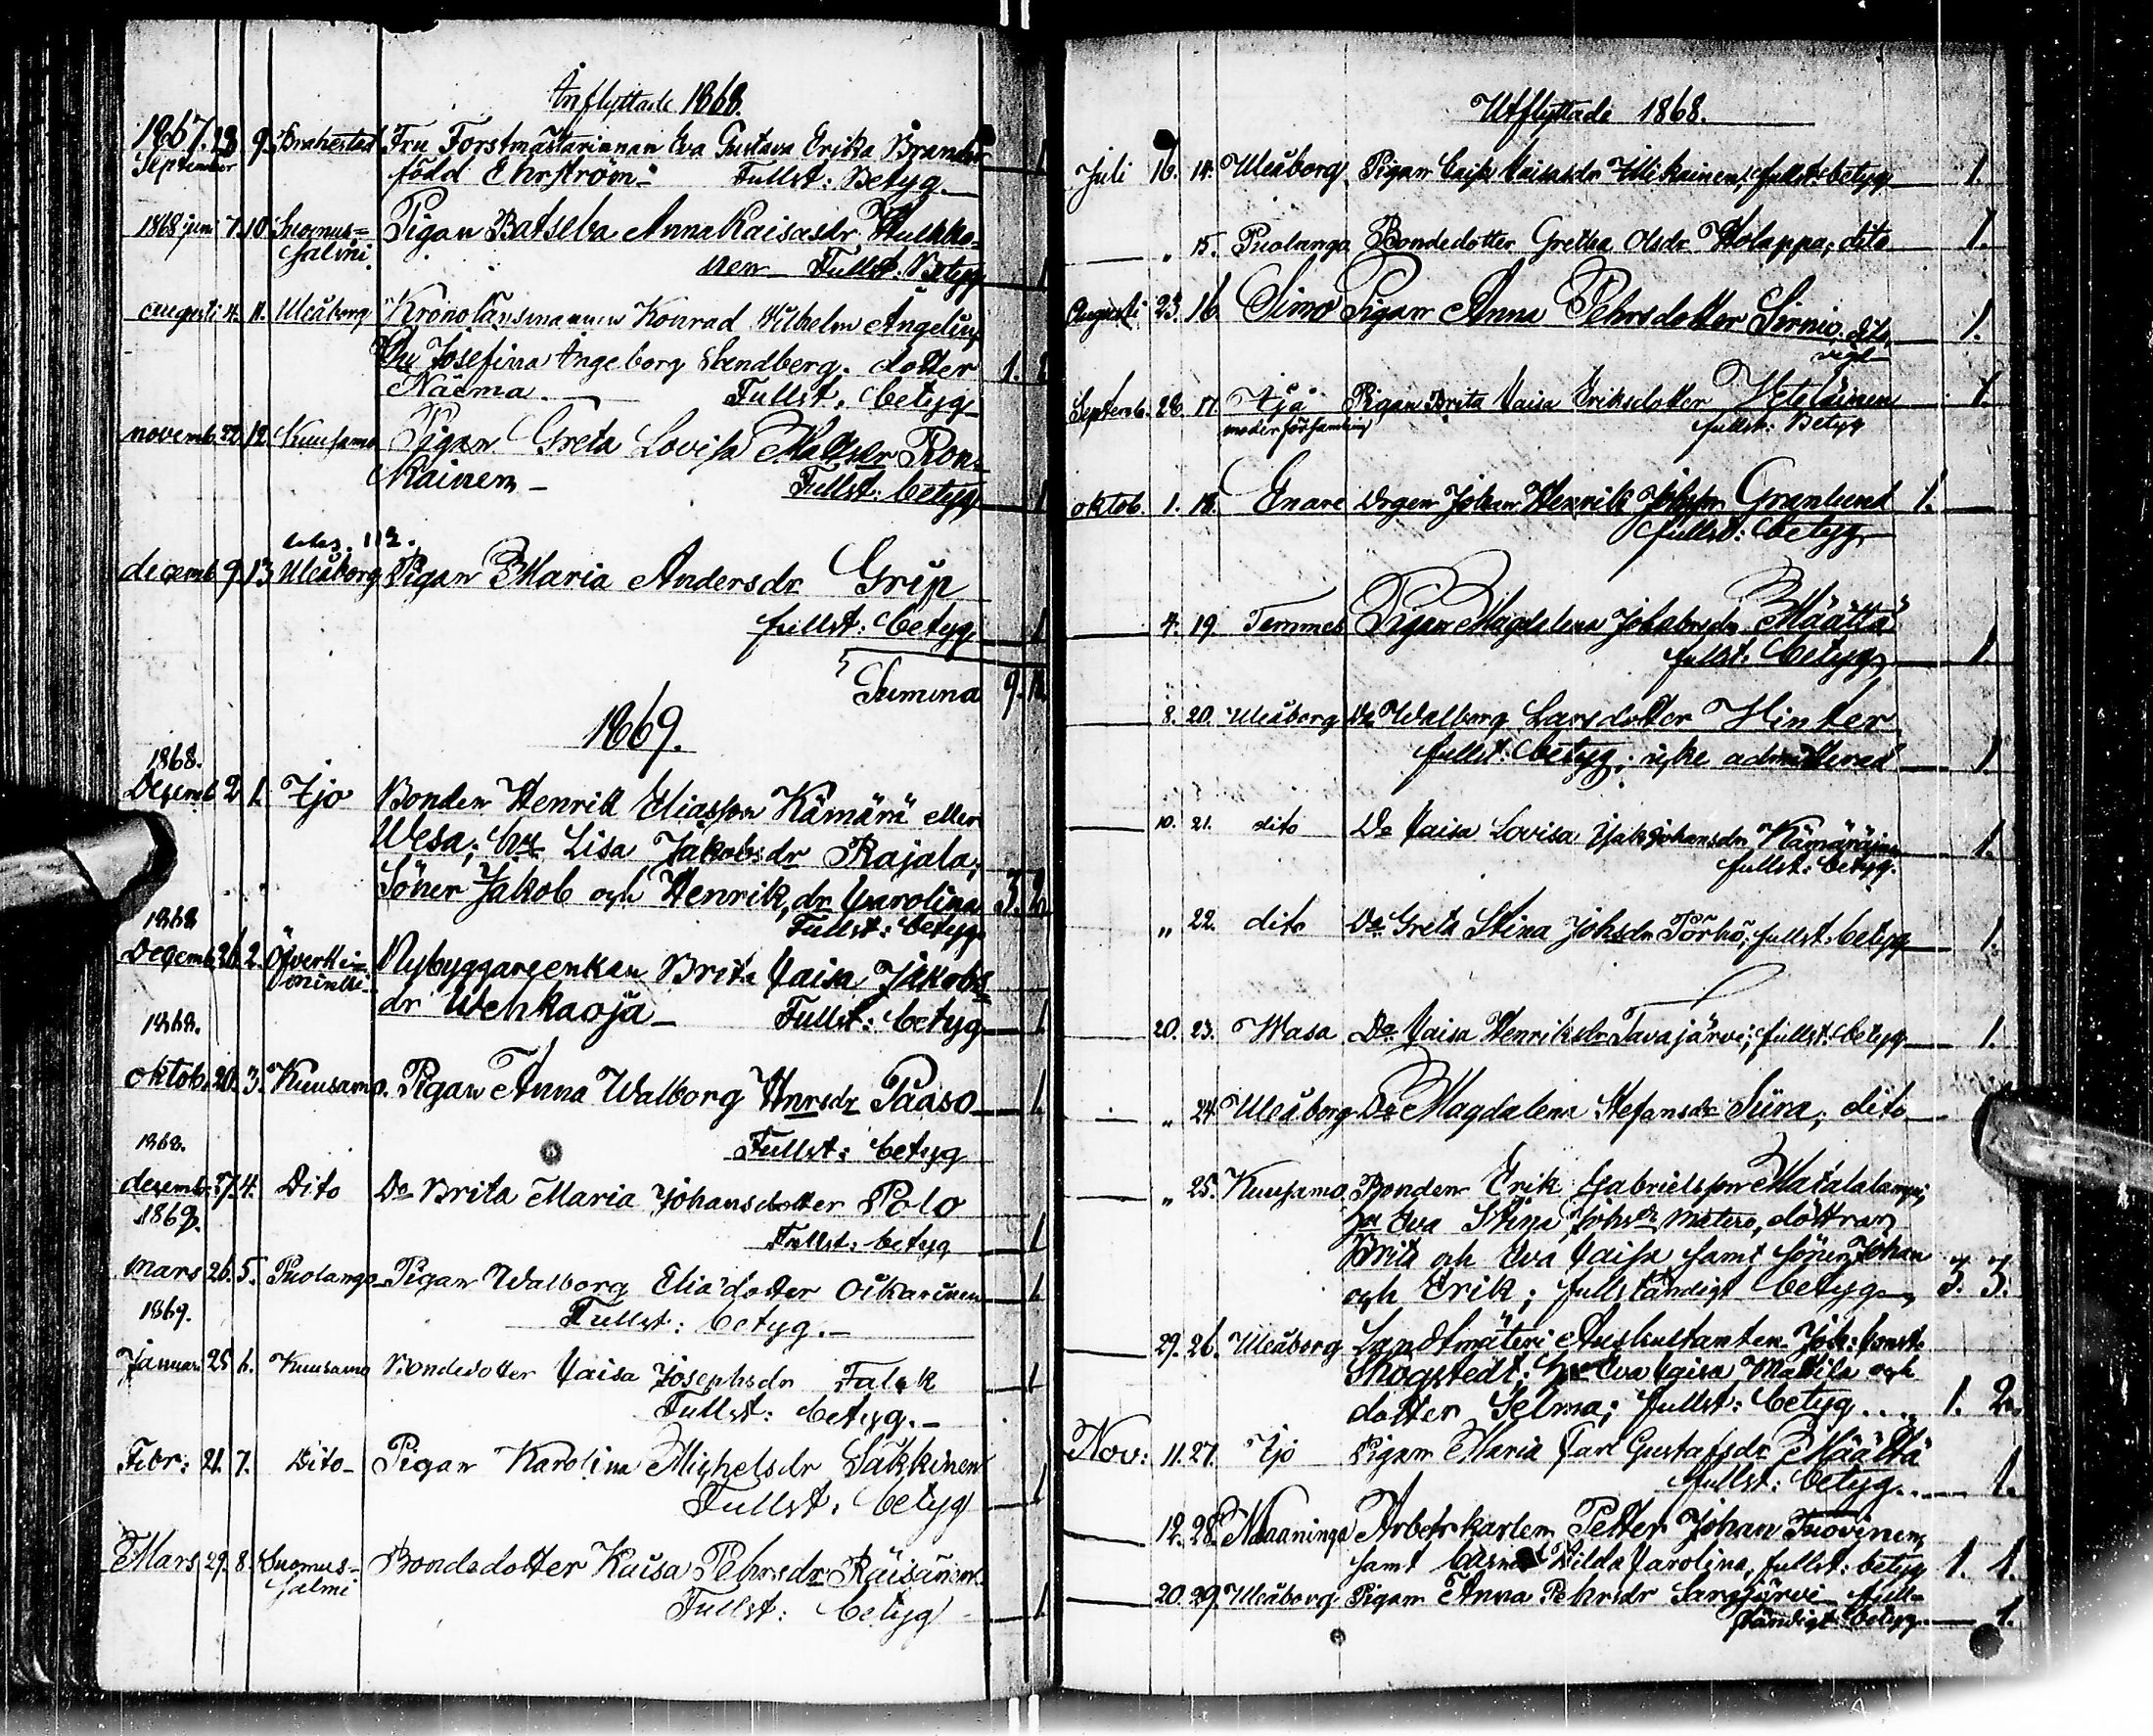 Inflyttade 1868.
1867. September 28 9. Brahestad Fru Forstmästarinnan Eva Gustava Erika Brander 1
född Ehrström. Fullst: Betyg.
1868 juni 7. 10. Suomus= Pigan Batseba Anna Kaisasdr Hulkko=
salmi. nen Fullst: Betyg 1
augusti 4. 11. Uleåborg Kronolänsmannen Konrad Wilhelm Angelius,
hu Josefina Ingeborg Sandberg. dotter 1.
Naëma. Fullst. betyg
novemb. 22. 12. Kuusamo Pigan Greta Lovisa Mattsdr Ron=
kainen - Fullst: betyg 1
decemb 9. 13. Uleåborg Pigan Maria Andersdr Grip
fullst: betyg 1
Summa 9.
1869.
1868.
Dezemb 2. 1. Ijo Bonden Henrik Eliasson Kämärä eller
Wesa; hu Lisa Jakobsdr Rajala;
Söner Jakob och Henrik, dr Carolina 3. 2.
Fullst: betyg
1868
Decemb. 26. 2. Öfverkii= Nybyggareenkan Brita Caisa Jakobs=
minki dr Wehkaoja - Fullst: betyg 1
1868.
oktob. 20. 3. Kuusamo. Pigan Anna Walborg Hnrsdr Paaso 1.
Fullst: betyg
1868.
desemb. 4. Dito Do Brita Maria Johansdotter Polo
Fullst: betyg 1
1869.
Mars 26. 5. Puolango Pigan Walborg Elia'dotter Oikarinen 1.
Fullst: betyg. -
1869.
Januari 25 6. Kuusamo Bondedotter Caisa Josephsdr Falck 1
Fullst: betyg. -
Febr: 21. 7. Dito - Pigan Karolina Michelsdr Säkkinen
Fullst: betyg 1
Mars 29. 8. Suomus= Bondedotter Kaisa Pehrsdr Räisänen.
salmi Fullst: betyg 1
Utflyttade 1868.
Juli 16. 14. Uleåborg. Pigan Caisa Caisasdr fullst: betyg 1.
" 15. Puolango Bondedotter Gretha Olsdr Holappa; dito 1.
Augusti 23. 16 Simo Pigan Anna Pehrsdotter Sirniö. dito 1.
Septemb. 28. 17. Ijå Pigan Brita Caisa Eriksdotter 1.
moderförsamling fullst: Betyg
oktob. 1. 18. Enare Drgen Johan Henrik Johsson Granlund 1.
fullst: betyg
4. 19. Temmes Pigan Magdalena Johansdr Määttä
fullst: betyg 1.
8. 20. Uleåborg Do Walborg Larsdotter Hinter
fullst: betyg; icke admitterad 1.
10. 21. dito Do Caisa Lovisa Johansdr Kämäräinen 1.
fullst: betyg.
" 22. dito Do Greta Stina Johsdr Törhö; fullst: betyg 1.
20. 23. Wasa Do Caisa Henriksdr Tavajärvi; fullst: betyg 1.
" 24. Uleåborg Do Magdalena Stefansdr Siira; dito 1.
" 25. Kuusamo. Bonden Erik Gabrielsson Matalalampi;
hu Eva Stina Johsdr Matero, döttrar
Brita och Eva Caisa samt söner Johan
och Erik; fullständigt betyg 3. 3.
29. 26. Uleåborg Landtmäteri Auskultanten Joh:
Skogstedt; hu Eva Caisa Matila och
dotter Selma; fullst: betyg.... 1. 2.
Nov: 11. 27. Ijo Pigan Maria Carl Gustafsdr Määttä
fullst: betyg... 1.
12. 28. Maaninga Arbetskarlen Petter Johan Tuovinen,
samt barnet Hilda Carolina, fullst: betyg 1. 1.
20. 29. Uleåborg Pigan Anna Pehrsdr Sarajärvi full=
ständigt betyg 1.